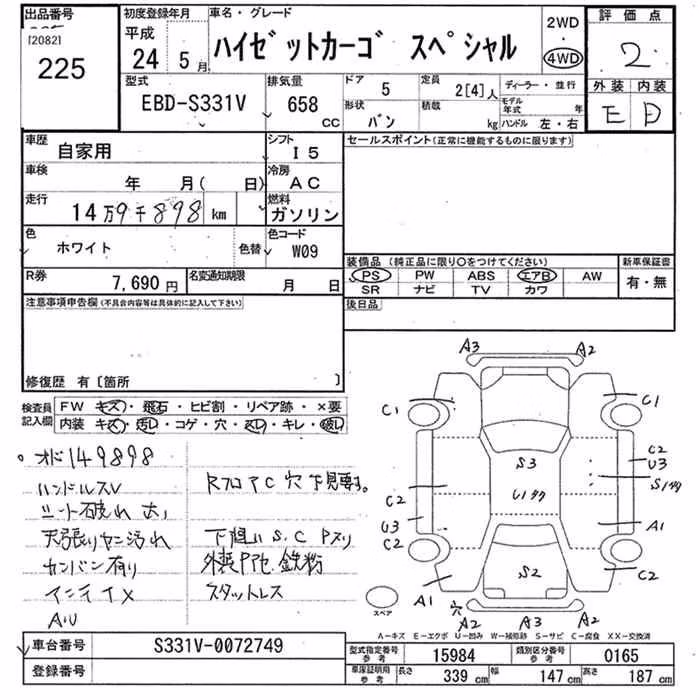 出品番号
[2082]
225
初度登録年月
平成
24 5 月
車名・グレード
ハイゼットカーゴ スペシャル
2WD
・
4WD
評価点
2
外装 内装
E D
型式
EBD-S331V
排気量
658
CC
ドア
5
定員
2[4]人
ディーラー・並行
形状
バン
積載
kg
モデル年式 年
ハンドル 左・右
車歴
自家用
シフト
I5
セールスポイント(正常に機能するものに限ります)
車検
年 月( 日)
冷房
AC
走行
14万9千898 km
燃料
ガソリン
色
ホワイト
色替
色コード
W09
装備品(純正品に限り○をつけてください)
新車保証書
PS PW ABS エアB AW
SR ナビ TV カワ
有・無
R券
7,690円
名変通知期限
月 日
後日品
注意事項申告欄(不具合内容等は具体的に記入して下さい)
修復歴 有〔箇所 〕
検査員記入欄
FW キズ・飛石・ヒビ割・リペア跡・×要
内装 キズ・汚レ・コゲ・穴・スレ・キレ・破レ
オド149898
ハンドルスレ
シート破れ 大
天張りヤニ汚れ
カンバン有り
下見要す。
下廻りS.C Pヌリ
鉄粉
スタットレス
A3 A2
C1 C1
S3
U1多数
C2
U3
S1多数
C2
U3
A1
C2
C2
S2
A1
穴
A2 A3 A2
スペア
A-キズ E-エクボ U-凹み W-補修跡 S-サビ C-腐食 XX-交換済
車台番号
S331V-0072749
登録番号
型式指定番号
参考
15984
類別区分番号
参考
0165
車庫証明用
参考
長さ
339 cm
幅
147 cm
高さ
187 cm